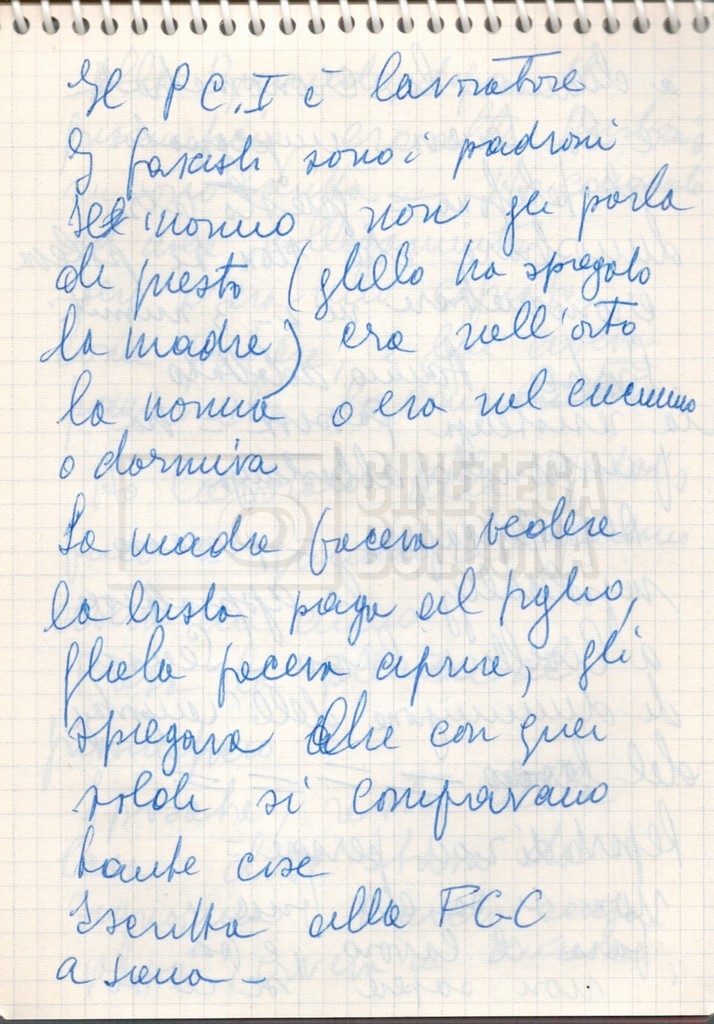 Il P C.I è lavoratore
I fascisti sono i padroni
Il nonno non gli parla
di presto (gliello ha spiegato
la madre) era nell'orto
la nonna o era nel cucinino
o dormiva
La madre faceva vedere
la busta paga al figlio,
gliela faceva aprire, gli
spiegava che con quei
soldi si compravano
tante cose
Iscritta alla FGC
CINETECA
BOLOGNA